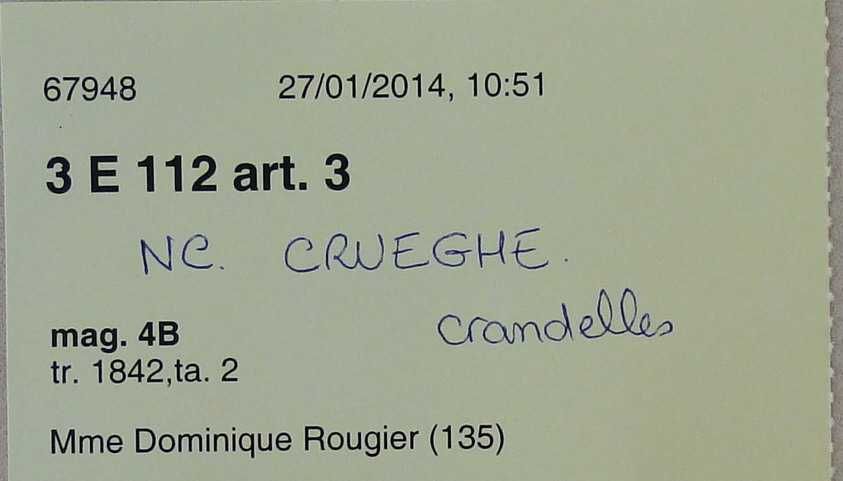 67948 27/01/2014, 10:51
3 E 112 art. 3
NC. CRUEGHE.
crandelles
mag. 4B
tr. 1842,ta. 2
Mme Dominique Rougier (135)